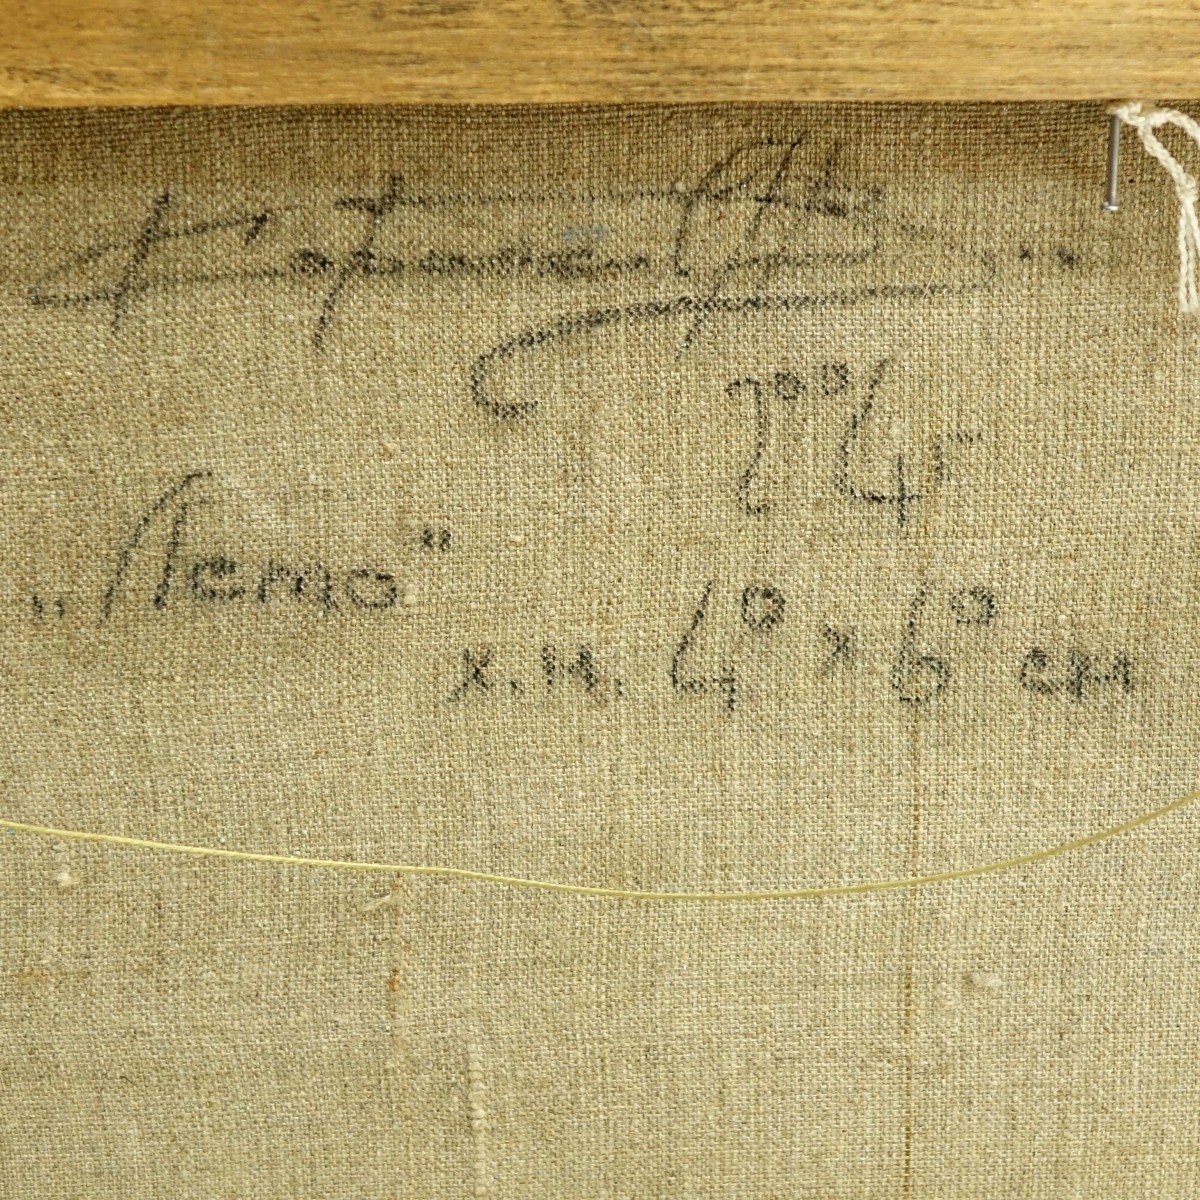 2004г
„Лето“
х.м. 40 х 60 см